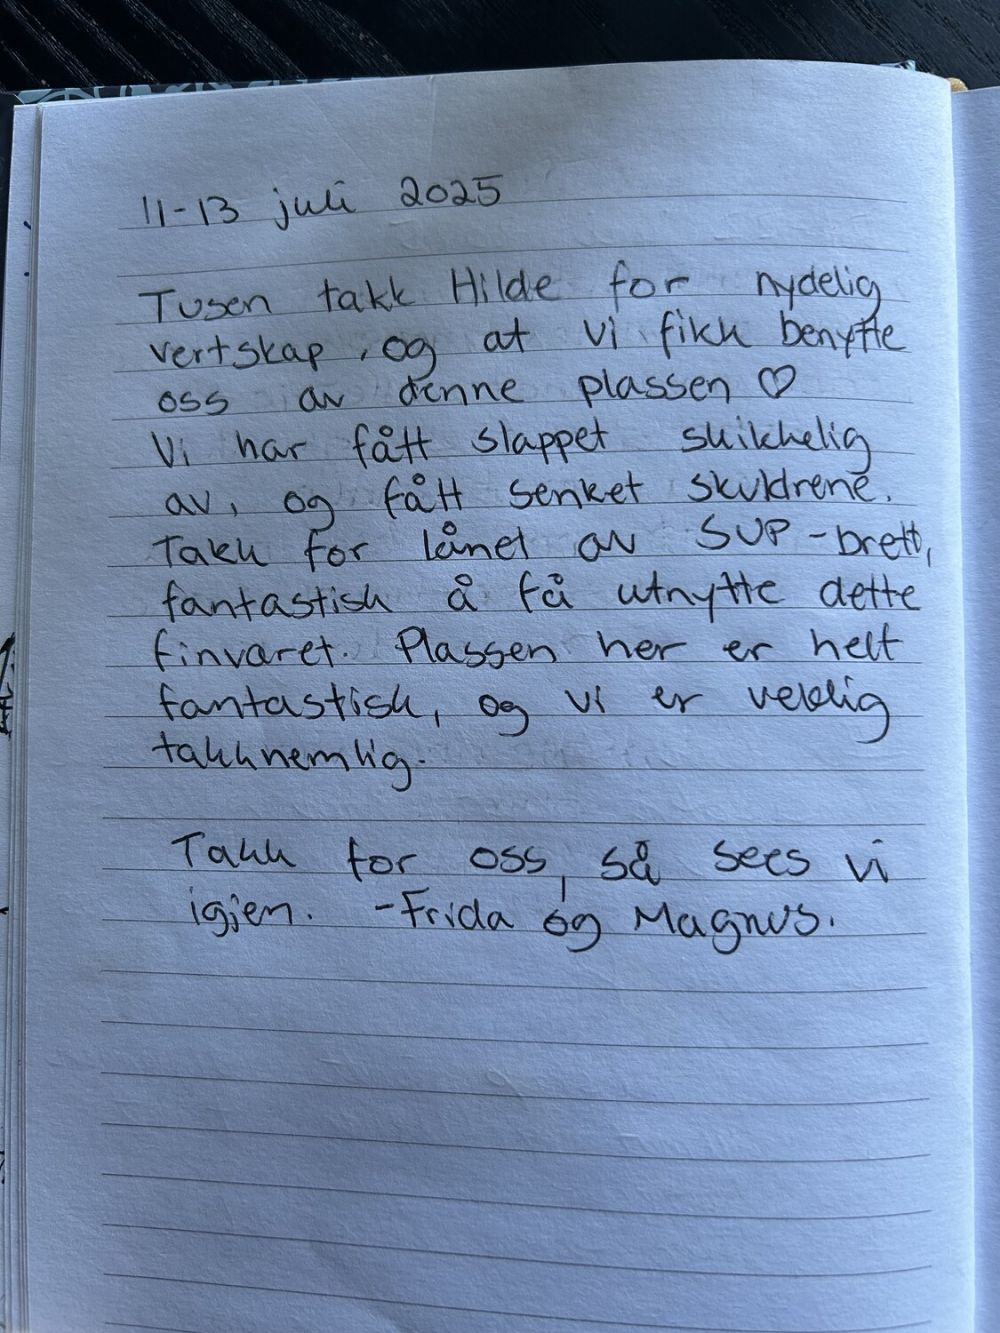 11-13 juli 2025
Tusen takk Hilde for nydelig
vertskap, og at vi fikk benytte
oss av denne plassen ♡
Vi har fått slappet skikkelig
av, og fått senket skuldrene.
Takk for lånet av SUP-brett,
fantastisk å få utnytte dette
finværet. Plassen her er helt
fantastisk, og vi er veldig
takknemlig.
Takk for oss, så sees vi
igjen. -Frida og Magnus.